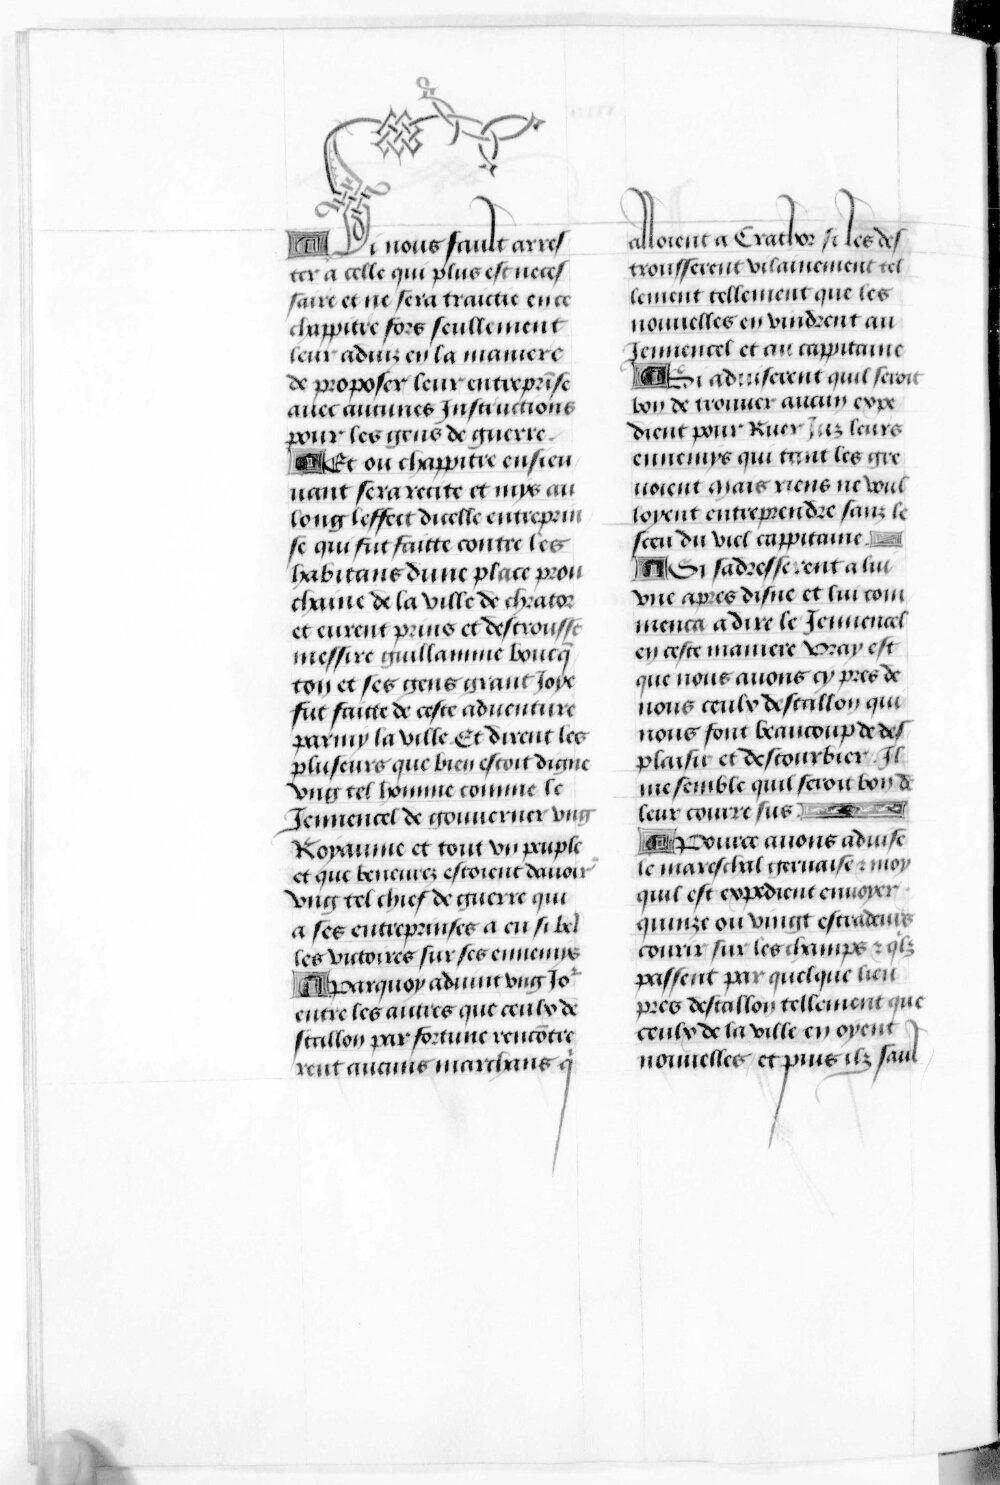 Si nous fault arres
ter a celle qui plus est neces
saire et ne sera traictie en ce
chappitre fors seullement
leur aduiz en la maniere
de proposer leur entreprise
auec aucunes Instructions
pour les gens de guerre.
Et ou chappitre ensieu
uant sera recite et mys au
long leffect dicelle entreprin
se qui fut faitte contre les
habitans dune place prou
chaine de la ville de chrator
et eurent prins et destrousse
messire guillamme boucq̄
ton et ses gens grant Joye
fut faitte de ceste aduenture
parmy la ville Et dirent les
pluseurs que bien estoit digne
vng tel homme comme le
Jennencel de gouuerner vng
Royaume et tout vn peuple
et que beneurez estoient dauoir
vng tel chief de guerre qui
a ses entreprinses a eu si bel
les victoires sur ses ennemys
Parquoy aduint vng Jor
entre les autres que ceulx de
stallon par fortune rencōtre
rent aucuns marchans q̄
alloient a Crathor si les des
trousserent vilainement tel
lement tellement que les
nouuelles en vindrent au
Jennencel et au cappitaine
Si aduiserent quil seroit
bon de trouuer aucun expe
dient pour Ruer Juz leurs
ennemys qui tant les gre
uoient Mais riens ne voul
loyent entreprendre sanz le
sceu du viel cappitaine.
Si sadresserent a lui
vne apres disne et lui com
menca a dire le Jennencel
en ceste maniere Vray est
que nous auons cy pres de
nous ceulx destallon qui
nous font beaucoup de des
plaisir et destourbier. Il
me semble quil seroit bon de
leur courre sus.
Pource auons aduise
le mareschal geruaise ⁊ moy
quil est expedient enuoyer
quinze ou vingt estradeurs
courir sur les champs ⁊ q̄lz
passent par quelque lieu
pres destallon tellement que
ceulx de la ville en oyent
nouuelles et puis ilz saul